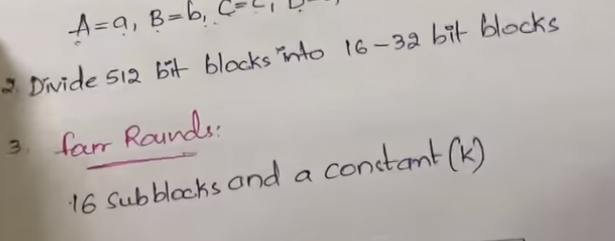 A=a, B=b, C=c,
2. Divide 512 bit blocks into 16-32 bit blocks
3. four Rounds:
16 subblocks and a constant (k)